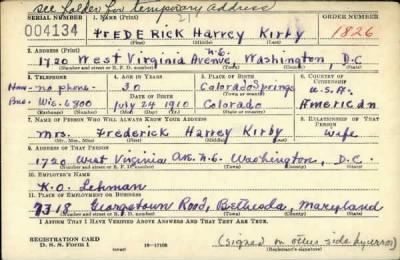 see folder for temporary address
SERIAL NUMBER 1. NAME (Print) ORDER NUMBER
004134 FREDERICK Harvey Kirby 1826
(First) (Middle) (Last)
2. ADDRESS (Print) N.E.
1720 West Virginia Avenue, Washington, D.C
(Number and street or R. F. D. number) (Town) (County) (State)
3. TELEPHONE 4. AGE IN YEARS 5. PLACE OF BIRTH 6. COUNTRY OF CITIZENSHIP
Home - no phone - 30 Colorado Springs U.S.A.
DATE OF BIRTH (Town or county)
Bus. Wis. 6800 July 24 1910 Colorado American
(Exchange) (Number) (Mo.) (Day) (Yr.) (State or country)
7. NAME OF PERSON WHO WILL ALWAYS KNOW YOUR ADDRESS 8. RELATIONSHIP OF THAT PERSON
Mrs. Frederick Harvey Kirby Wife
(Mr., Mrs., Miss) (First) (Middle) (Last)
9. ADDRESS OF THAT PERSON
1720 West Virginia Ave. N.E. Washington, D.C.
(Number and street or R. F. D. number) (Town) (County) (State)
10. EMPLOYER'S NAME
K.O. Lehman
11. PLACE OF EMPLOYMENT OR BUSINESS
7318 Georgetown Road, Bethesda, Maryland
(Number and street or R. F. D. number) (Town) (County) (State)
I AFFIRM THAT I HAVE VERIFIED ABOVE ANSWERS AND THAT THEY ARE TRUE.
REGISTRATION CARD (signed on other side by error)
D. S. S. Form 1 16-17105 (Registrant's signature)